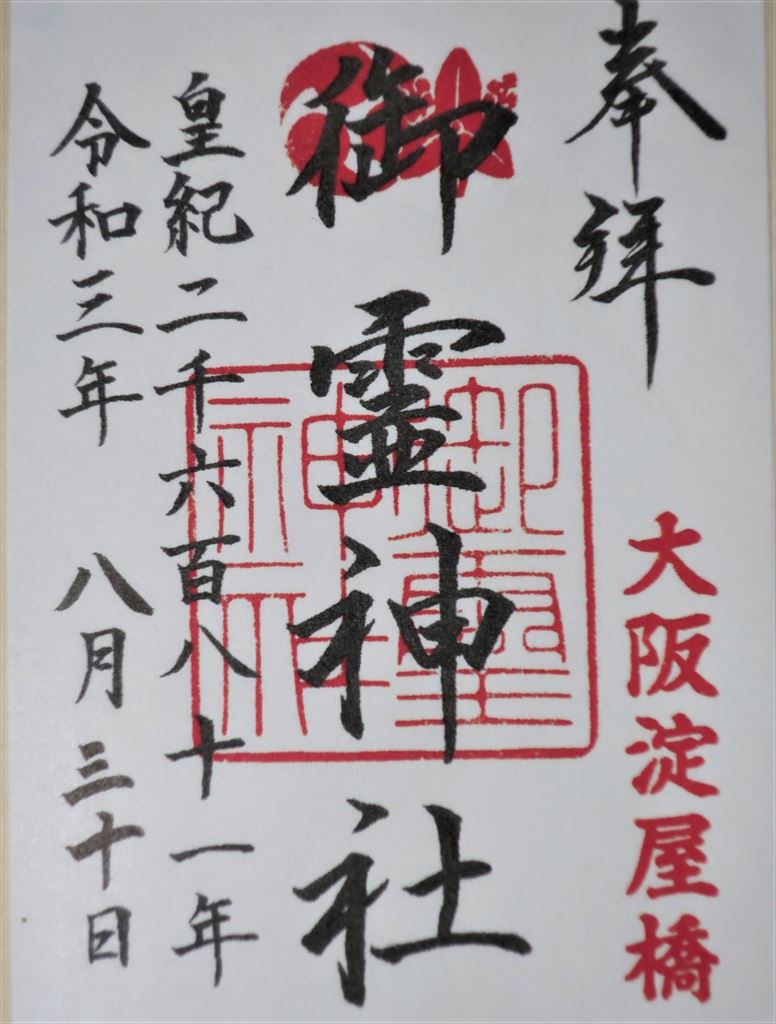 奉拝
大阪淀屋橋
御霊神社
御霊神社
皇紀二千六百八十一年
令和三年 八月三十日